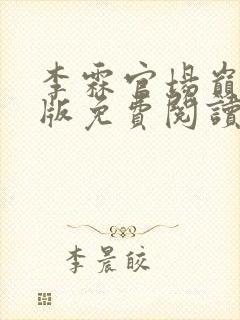 李霖官場巔
版免費閱讀
李晨皎